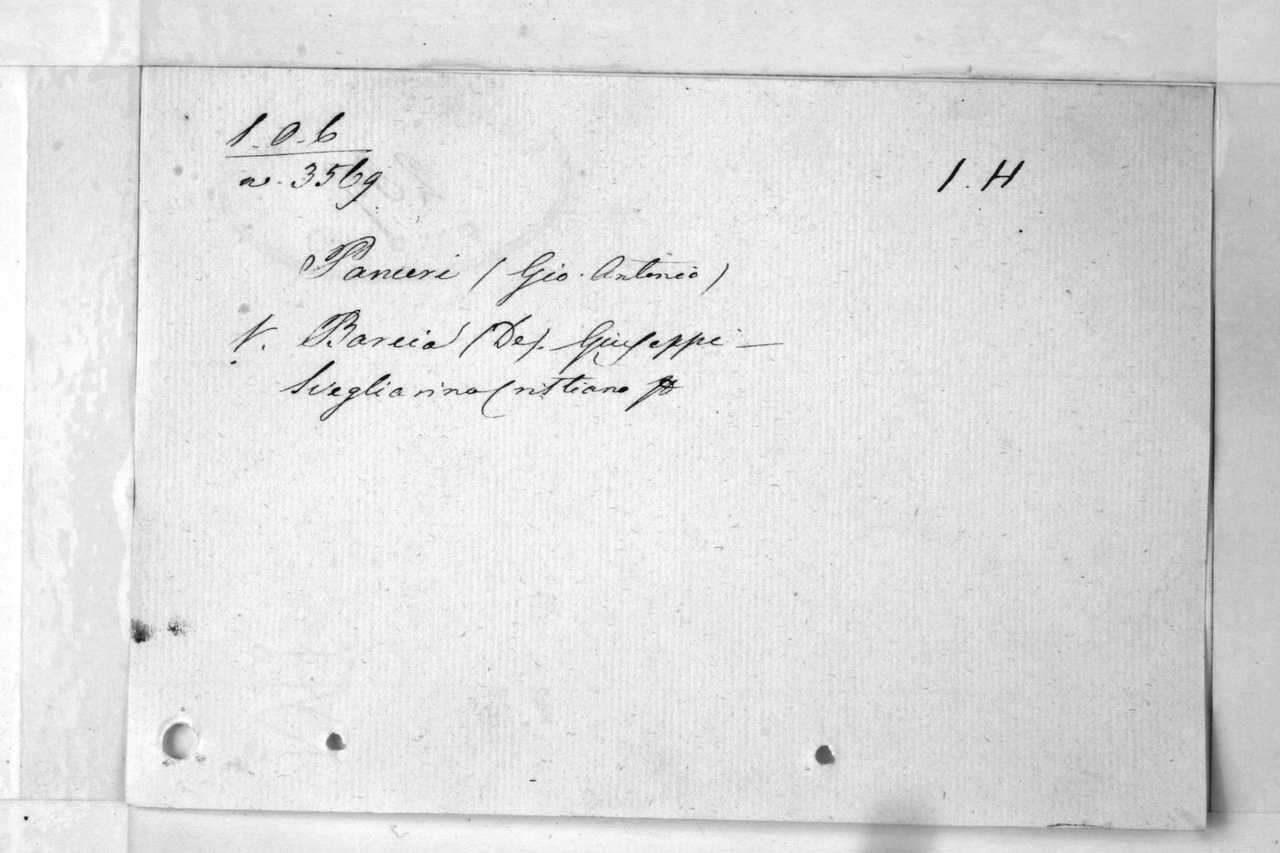 1.0.6
n. 3569
1. H
Panceri (Gio. Antonio)
V. Barcia (De). Giuseppe —
Svegliarino Cristiano